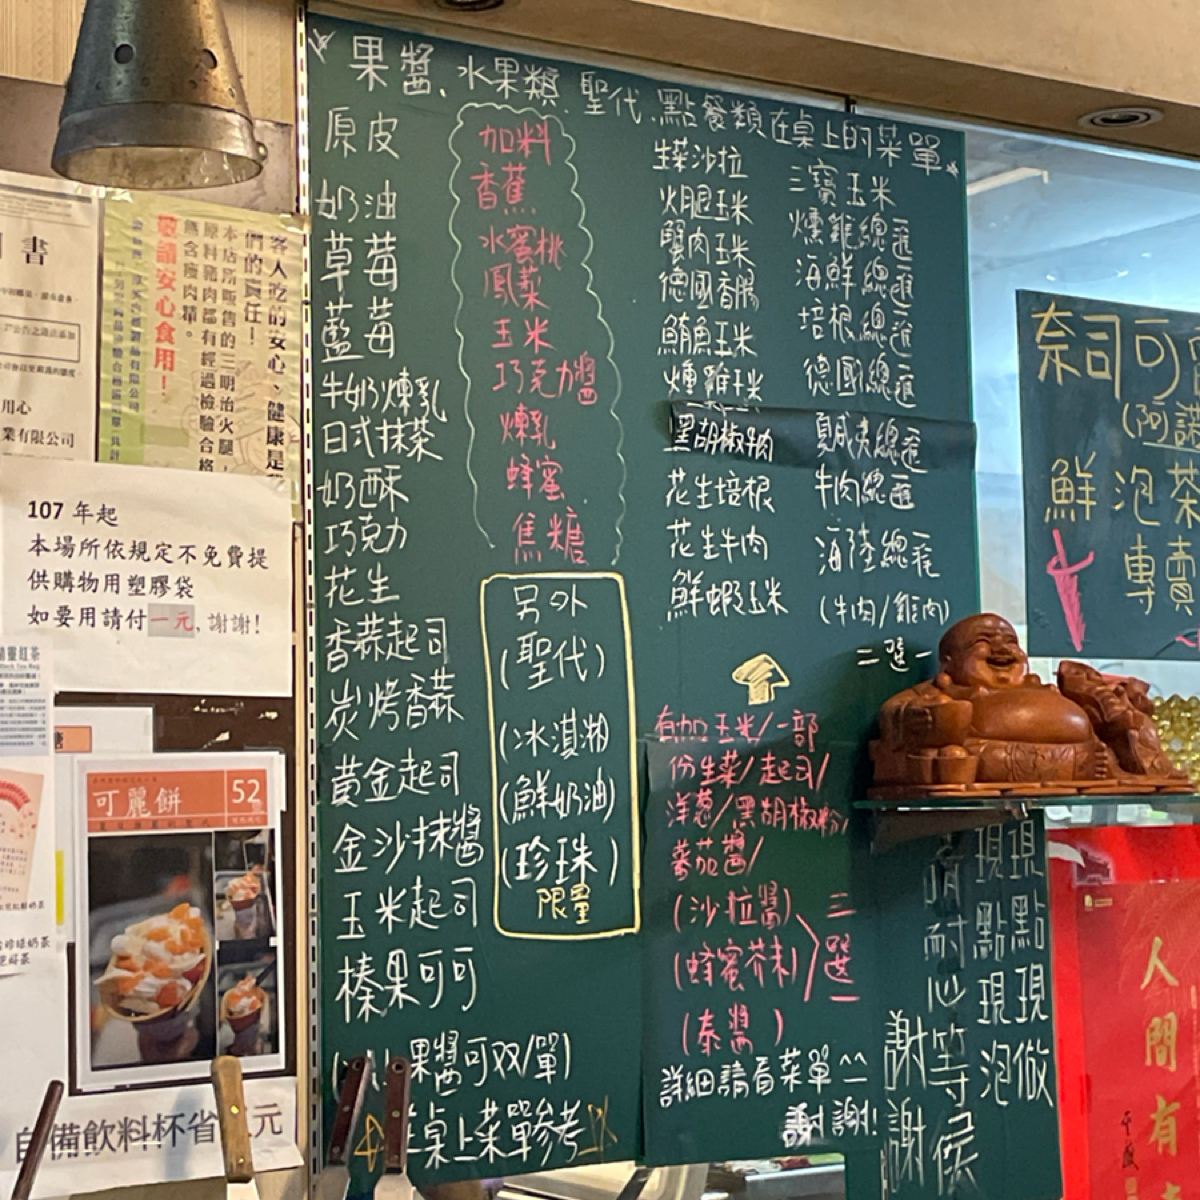 果醬.水果類.聖代.點餐類在桌上的菜單
原皮
奶油
草莓
藍莓
牛奶煉乳
日式抹茶
奶酥
巧克力
花生
香蒜起司
炭烤香蒜
黃金起司
金沙抹醬
玉米起司
榛果可可
果醬可双/單)
桌上菜單參考
加料
香蕉
水蜜桃
鳳梨
玉米
巧克力醬
煉乳
蜂蜜.
焦糖
另外
(聖代)
(冰淇淋)
(鮮奶油)
(珍珠)
限量
生菜沙拉
火腿玉米
蟹肉玉米
德國香腸
鮪魚玉米
燻雞玉米
黑胡椒牛肉
花生培根
花生牛肉
鮮蝦玉米
三寶玉米
燻雞總匯
海鮮總匯
培根總匯
德國總匯
夏威夷總匯
牛肉總匯
海陸總匯
(牛肉/雞肉)
二選一
有加玉米/一部
份生菜/起司/
洋蔥/黑胡椒粉/
蕃茄醬/
(沙拉醬)
(蜂蜜芥末)
(泰醬)
三選一
詳細請看菜單^^
謝謝!
現點現做
現點現泡
請耐心等候
謝謝
奈司可
鮮泡茶
專賣
人間有
書
用心
業有限公司
客人吃的安心、健康是
們的責任!
本店所販售的三明治火腿,
原料豬肉都有經過檢驗合格
無含瘦肉精。
敬請安心食用!
107 年起
本場所依規定不免費提
供購物用塑膠袋
如要用請付一元,謝謝!
可麗餅
52
自備飲料杯省 元